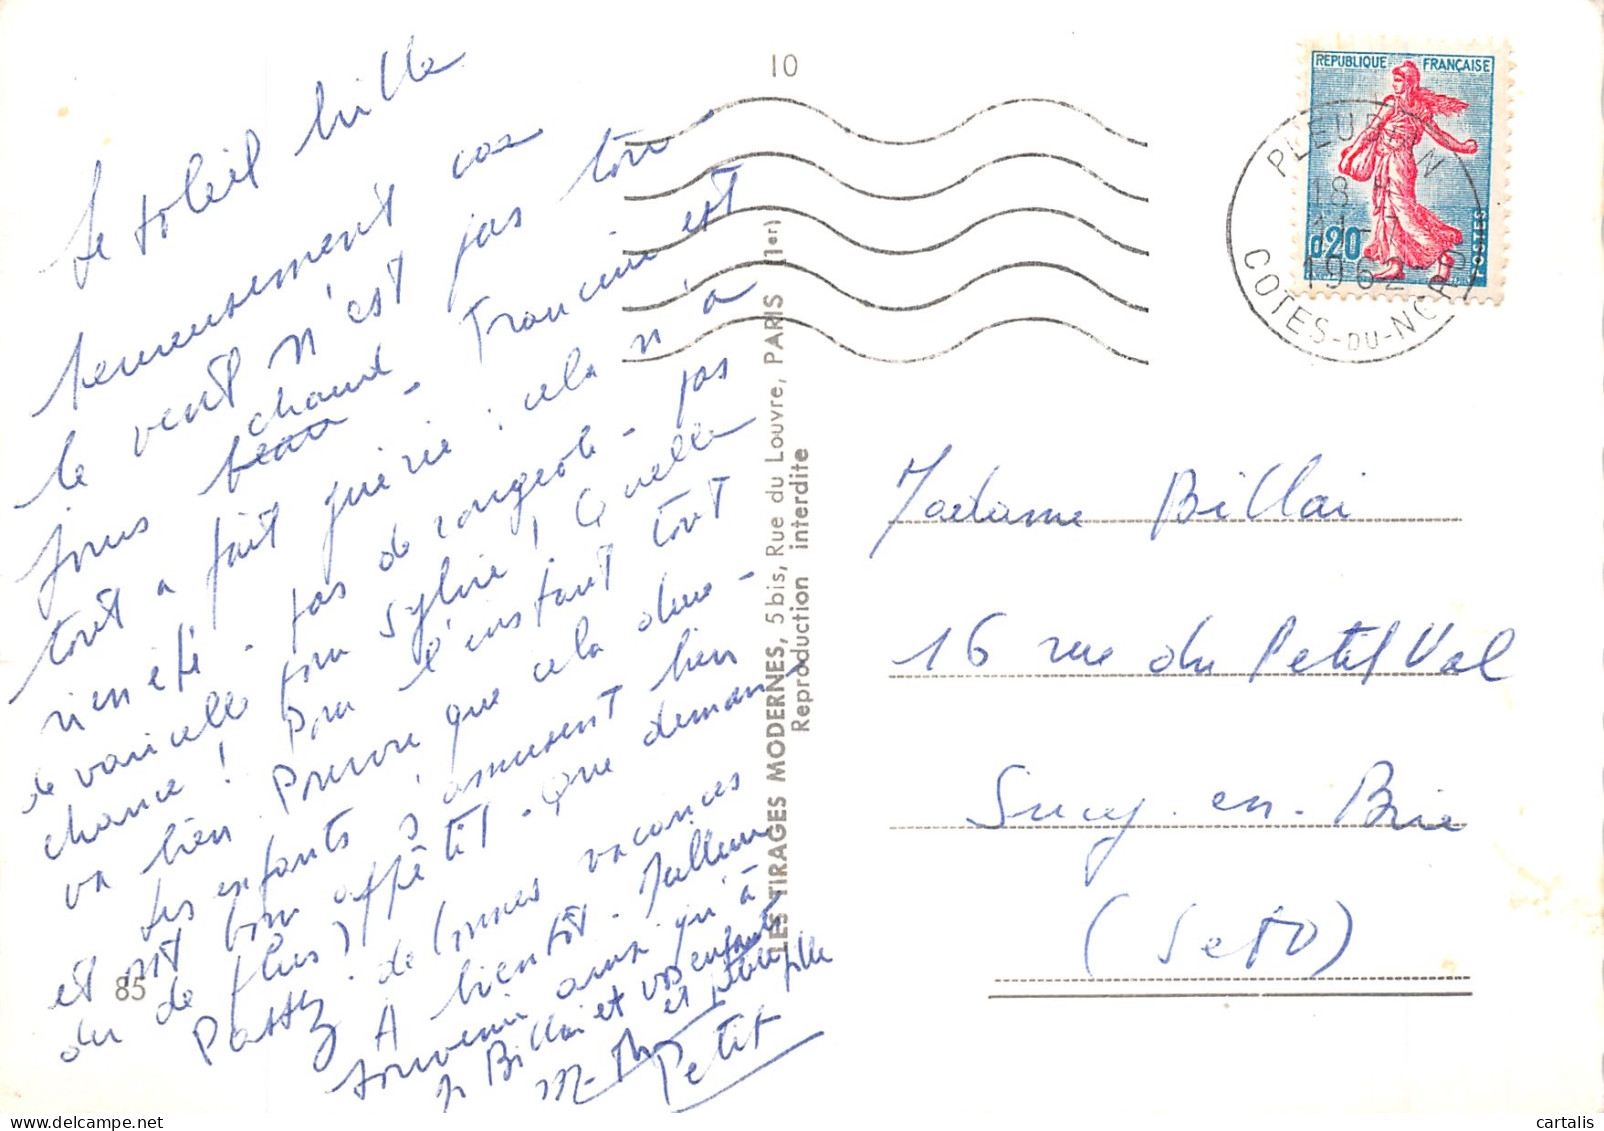 Le soleil brille
heureusement car
le vent n'est pas tou
jours beau chaud - Francine est
tout a fait guérie : cela n'a
rien été - pas de rougeole - pas
de varicelle pour Sylvie ! Quelle
chance ! Pour l'instant tout
va bien. Pourvu que cela dure -
Les enfants s'amusent bien
et ont bon appétit - que demander
de plus ?
Passez de bonnes vacances
A bientôt - Meilleur
souvenir ainsi qu'à
Mr Billai et vos enfants
et petite fille
Petit
10
85
LES TIRAGES MODERNES, 5 bis, Rue du Louvre, PARIS (1er)
Reproduction interdite
REPUBLIQUE FRANÇAISE
0,20
POSTES
PLEUBIAN
18 H
11-7
1962
COTES-DU-NORD
Madame Billai
16 rue du Petit Val
Sucy-en-Brie
(S et O)
cartalis